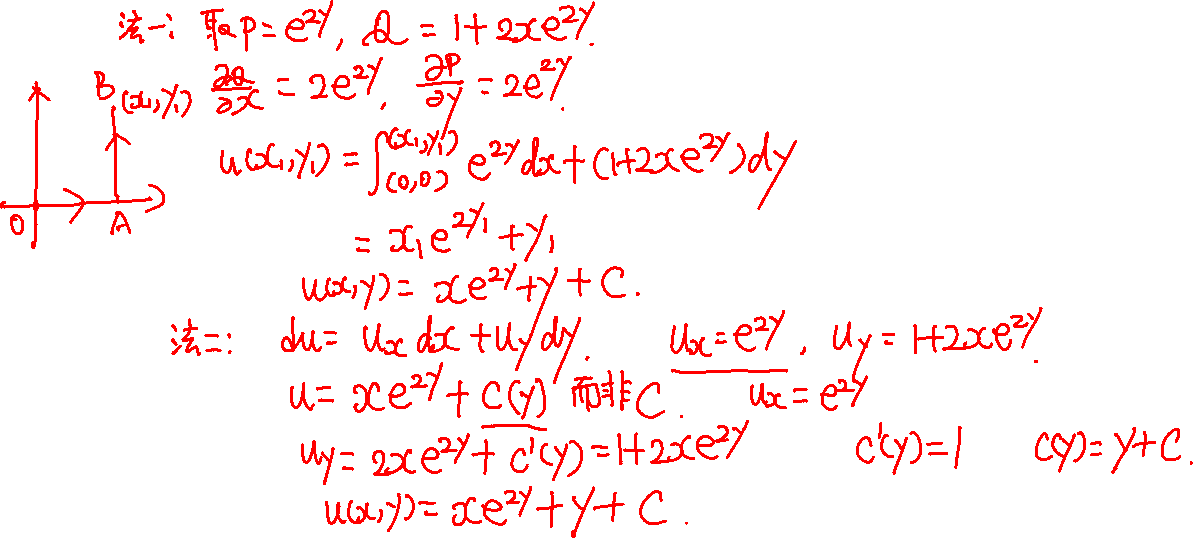 法一: 取P=e^{2y}, Q=1+2xe^{2y}.
B(x₁,y₁) ∂Q/∂x=2e^{2y}, ∂P/∂y=2e^{2y}.
u(x₁,y₁)=∫_{(0,0)}^{(x₁,y₁)} e^{2y}dx+(1+2xe^{2y})dy
O A
=x₁e^{2y₁}+y₁
u(x,y)=xe^{2y}+y+C.
法二: du=u_x dx+u_y dy. u_x=e^{2y}, u_y=1+2xe^{2y}.
u=xe^{2y}+C(y) 而非C. u_x=e^{2y}
u_y=2xe^{2y}+C'(y)=1+2xe^{2y} C'(y)=1 C(y)=y+C.
u(x,y)=xe^{2y}+y+C.